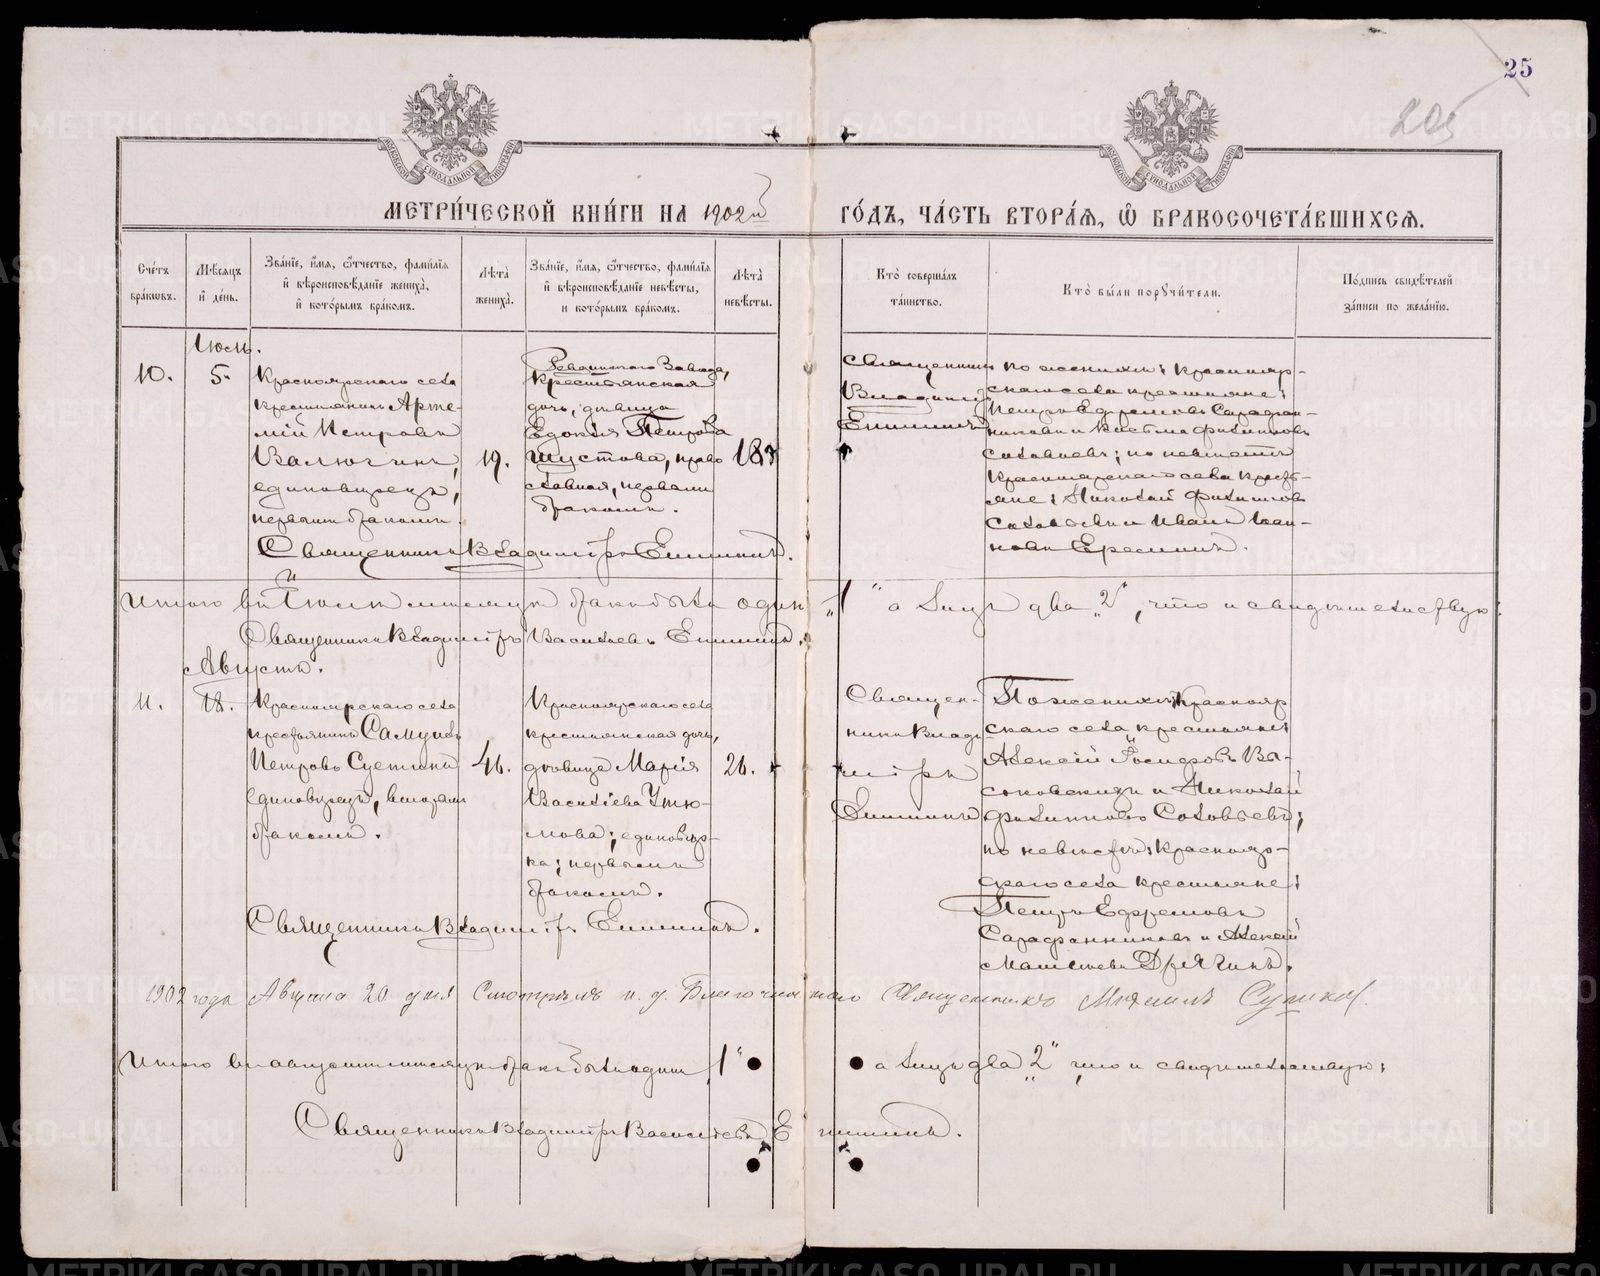 25
205
МЕТРИ́ЧЕСКОЙ КНИ́ГИ НА 1902й ГО́ДЪ, ЧА́СТЬ ВТОРА́Я, Ѡ БРАКОСОЧЕТА́ВШИХСЯ.
Сче́тъ бра́кѡвъ.
Мѣ́сяцъ и҆ де́нь.
Зва́нїе, и҆́мя, ѻ҆́тчество, фами́лїя и҆ вѣроисповѣ́данїе жениха̀, и҆ кото́рымъ бра́комъ.
Лѣта̀ жениха̀.
Зва́нїе, и҆́мя, ѻ҆́тчество, фами́лїя и҆ вѣроисповѣ́данїе невѣ́сты, и кото́рымъ бра́комъ.
Лѣта̀ невѣ́сты.
Кто̀ соверша́лъ та́инство.
Кто̀ бы́ли порꙋчи́тели.
По́дпись свидѣ́телей за́писи по жела́нїю.
Іюль.
10.
5.
Красноярскаго села
крестьянинъ Арте-
мій Петровъ
Валюгинъ,
единовѣрецъ,
первымъ бракомъ.
19.
Ревдинскаго Завода,
крестьянская
дочь, дѣвица
Евдокія Петрова
Шустова, право
славная, первымъ
бракомъ.
18
Священникъ
Владиміръ
Епишинъ
По женихѣ: Краснояр-
скаго села крестьяне:
Петръ Ефремовъ Сарафан-
никовъ и Филипповъ
Соловьевъ; по невѣстѣ
Красноярскаго села кресть-
яне: Николай Филипповъ
Соловьевъ и Иванъ Іоан-
новъ Ереминъ.
Священникъ Владиміръ Епишинъ.
Итого въ Іюлѣ мѣсяцѣ бракъ былъ одинъ „1“ а лицъ два „2“, что и свидѣтельствую:
Священникъ Владиміръ Васильевъ Епишинъ.
Августъ.
11.
18.
Красноярскаго села
крестьянинъ Самуилъ
Петровъ Суетинъ
единовѣрецъ, вторымъ
бракомъ.
46.
Красноярскаго села
крестьянская дочь,
дѣвица Марія
Василіева Утю-
мова; единовѣр-
ка; первымъ
бракомъ.
26.
Священ-
никъ Влади-
міръ
Епишинъ
По женихѣ: Краснояр
скаго села крестьяне:
Алексій Іосифовъ Ва-
и Николай
Филипповъ Соловьевъ;
по невѣстѣ: Краснояр-
скаго села крестьяне:
Петръ Ефремовъ
Сарафанниковъ и Алексій
Матѳеевъ Дрягинъ.
Священникъ Владиміръ Епишинъ.
1902 года Августа 20 дня Смотрѣлъ и. д. Благочиннаго Священникъ Михаилъ
Итого въ августѣ мѣсяцѣ бракъ былъ одинъ „1“ а лицъ два „2“ что и свидѣтельствую:
Священникъ Владиміръ Васильевъ Епишинъ.